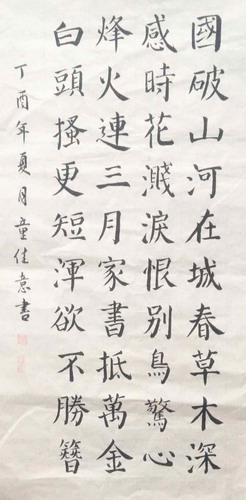 國破山河在城春草木深
感時花濺淚恨別鳥驚心
烽火連三月家書抵萬金
白頭搔更短渾欲不勝簪
丁酉年夏月童佳意書